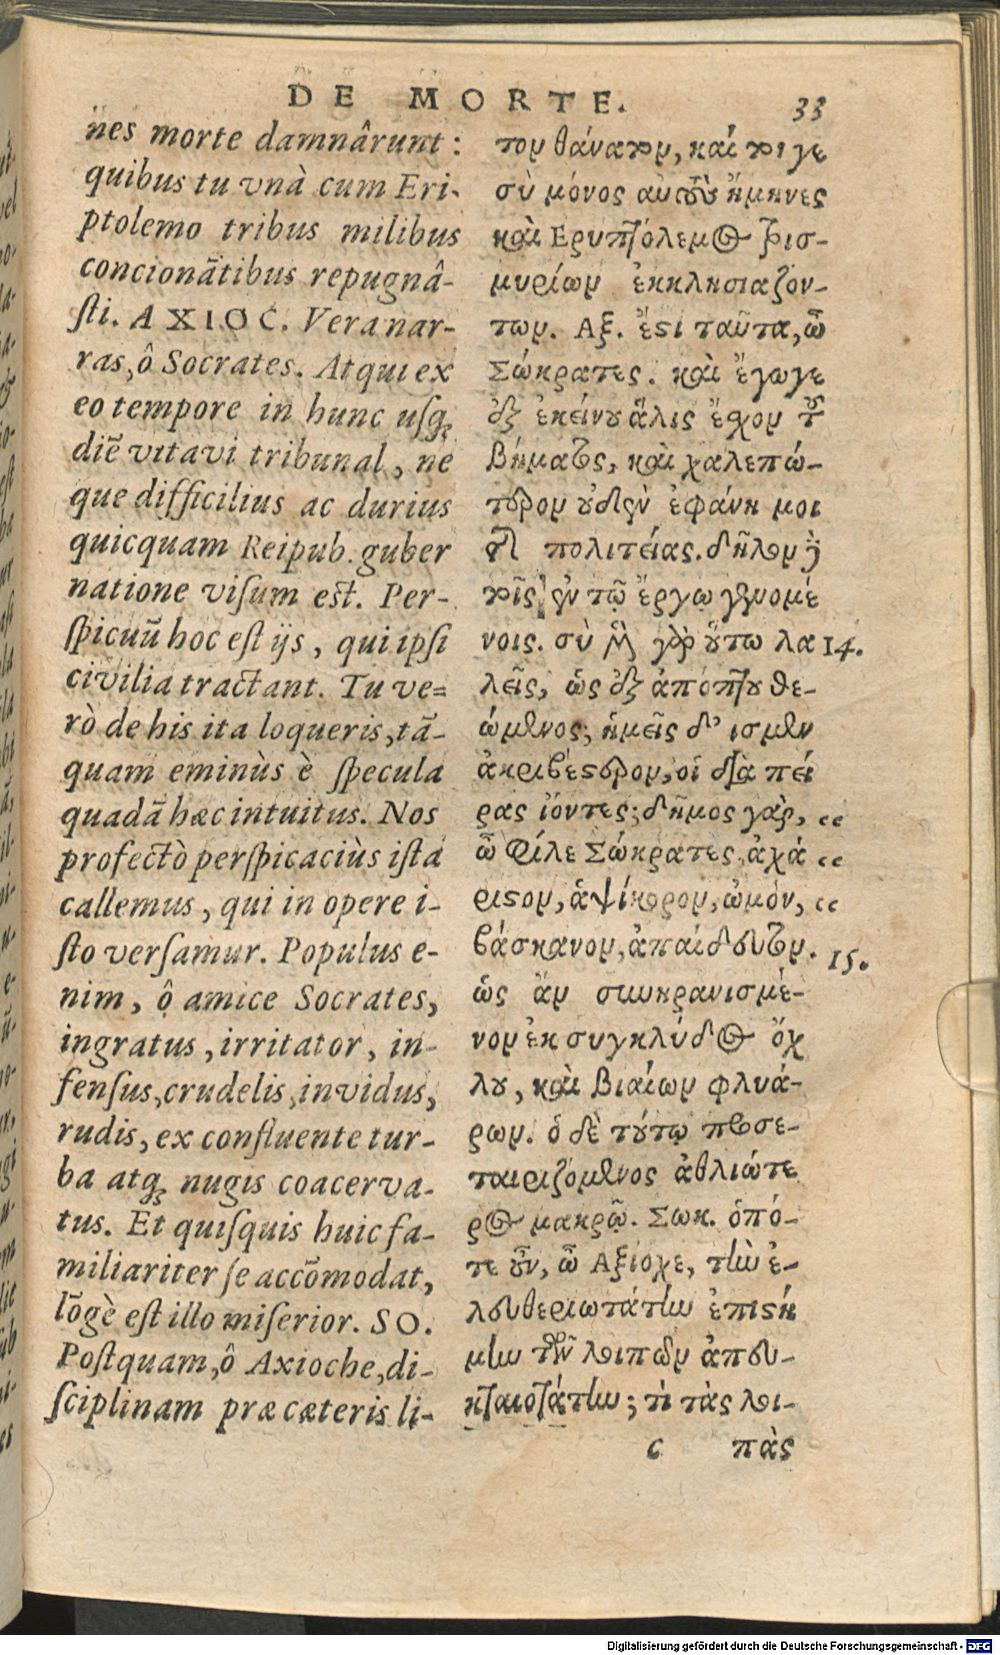 DE MORTE. 33
nes morte damnârunt:
quibus tu vnà cum Eri-
ptolemo tribus milibus
concionātibus repugnâ-
sti. AXIOC. Vera nar-
ras, ô Socrates. Atqui ex
eo tempore in hunc usq;
diē vitavi tribunal, ne
que difficilius ac durius
quicquam Reipub. guber
natione visum est. Per-
spicuū hoc est ijs, qui ipsi
civilia tractant. Tu ve=
rò de his ita loqueris, tā-
quam eminùs è specula
quadā hæc intuitus. Nos
profectò perspicaciùs ista
callemus, qui in opere i-
sto versamur. Populus e-
nim, ô amice Socrates,
ingratus, irritator, in-
fensus, crudelis, invidus,
rudis, ex confluente tur-
ba atq; nugis coacerva-
tus. Et quisquis huic fa-
miliariter se accōmodat,
lōgè est illo miserior. SO.
Postquam, ô Axioche, di-
sciplinam præ cæteris li-
τον θάνατον, καί τοι γε
σὺ μόνος αὐτοῦ ἤμηνες
καὶ Ερυπτόλεμος τρισ-
μυρίων ἐκκλησιαζόν-
των. Αξ. ἔστι ταῦτα, ὦ
Σώκρατες. καὶ ἔγωγε
ἐξ ἐκείνου ἅλις ἔσχον τοῦ
βήματος, καὶ χαλεπώ-
τερον οὐδὲν ἐφάνη μοι
τῆς πολιτείας. δῆλον δὲ
τοῖς ἐν τῷ ἔργω γενομέ
νοις. σὺ μὲν γὰρ οὕτω λα 14.
λεῖς, ὡς ἐξ ἀπόπτου θε-
ώμενος, ἡμεῖς δ' ισμεν
ἀκριβέστερον, οἱ διὰ πεί
ρας ἰόντες; δῆμος γὰρ, "
ὦ φίλε Σώκρατες, ἀχά "
ριστον, ἁψίκορον, ὠμόν, "
βάσκανον, ἀπαίδευτον. 15.
ὡς ἂν συνκρανισμέ-
νον ἐκ συγκλύδος ὄχ
λου, καὶ βιαίων φλυά-
ρων. ὁ δὲ τούτῳ προσε-
ταιριζόμενος ἀθλιώτε
ρος μακρῷ. Σωκ. ὁπό-
τε οὖν, ὦ Αξίοχε, τὴν ἐ-
λευθεριωτάτην ἐπιστή
μην τῶν λοιπῶν ἀπευ-
κταιοτάτην; τί τὰς λοι-
c πὰς
Digitalisierung gefördert durch die Deutsche Forschungsgemeinschaft - DFG